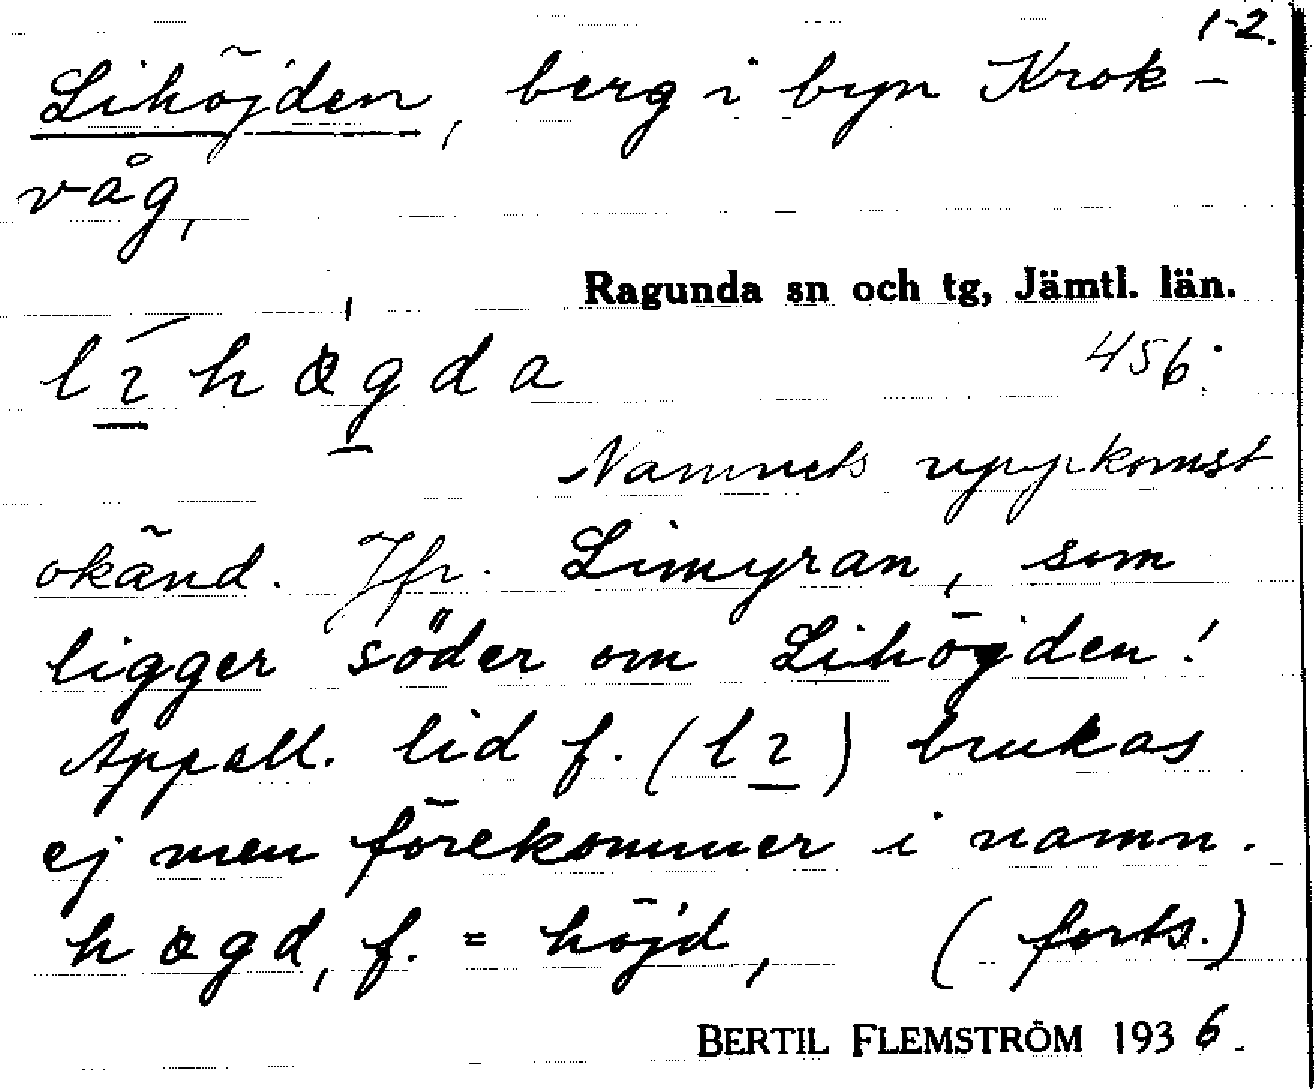 1-2.
Lihöjden, berg i byn Krok-
våg,
Ragunda sn och tg, Jämtl. län.
456:
Namnets uppkomst
okänd. Jfr. Limyran, som
ligger söder om Lihöjden!
Appell. lid f. (lı) brukas
ej men förekommer i namn.
hægd, f. = höjd, (forts.)
BERTIL FLEMSTRÖM 1936.